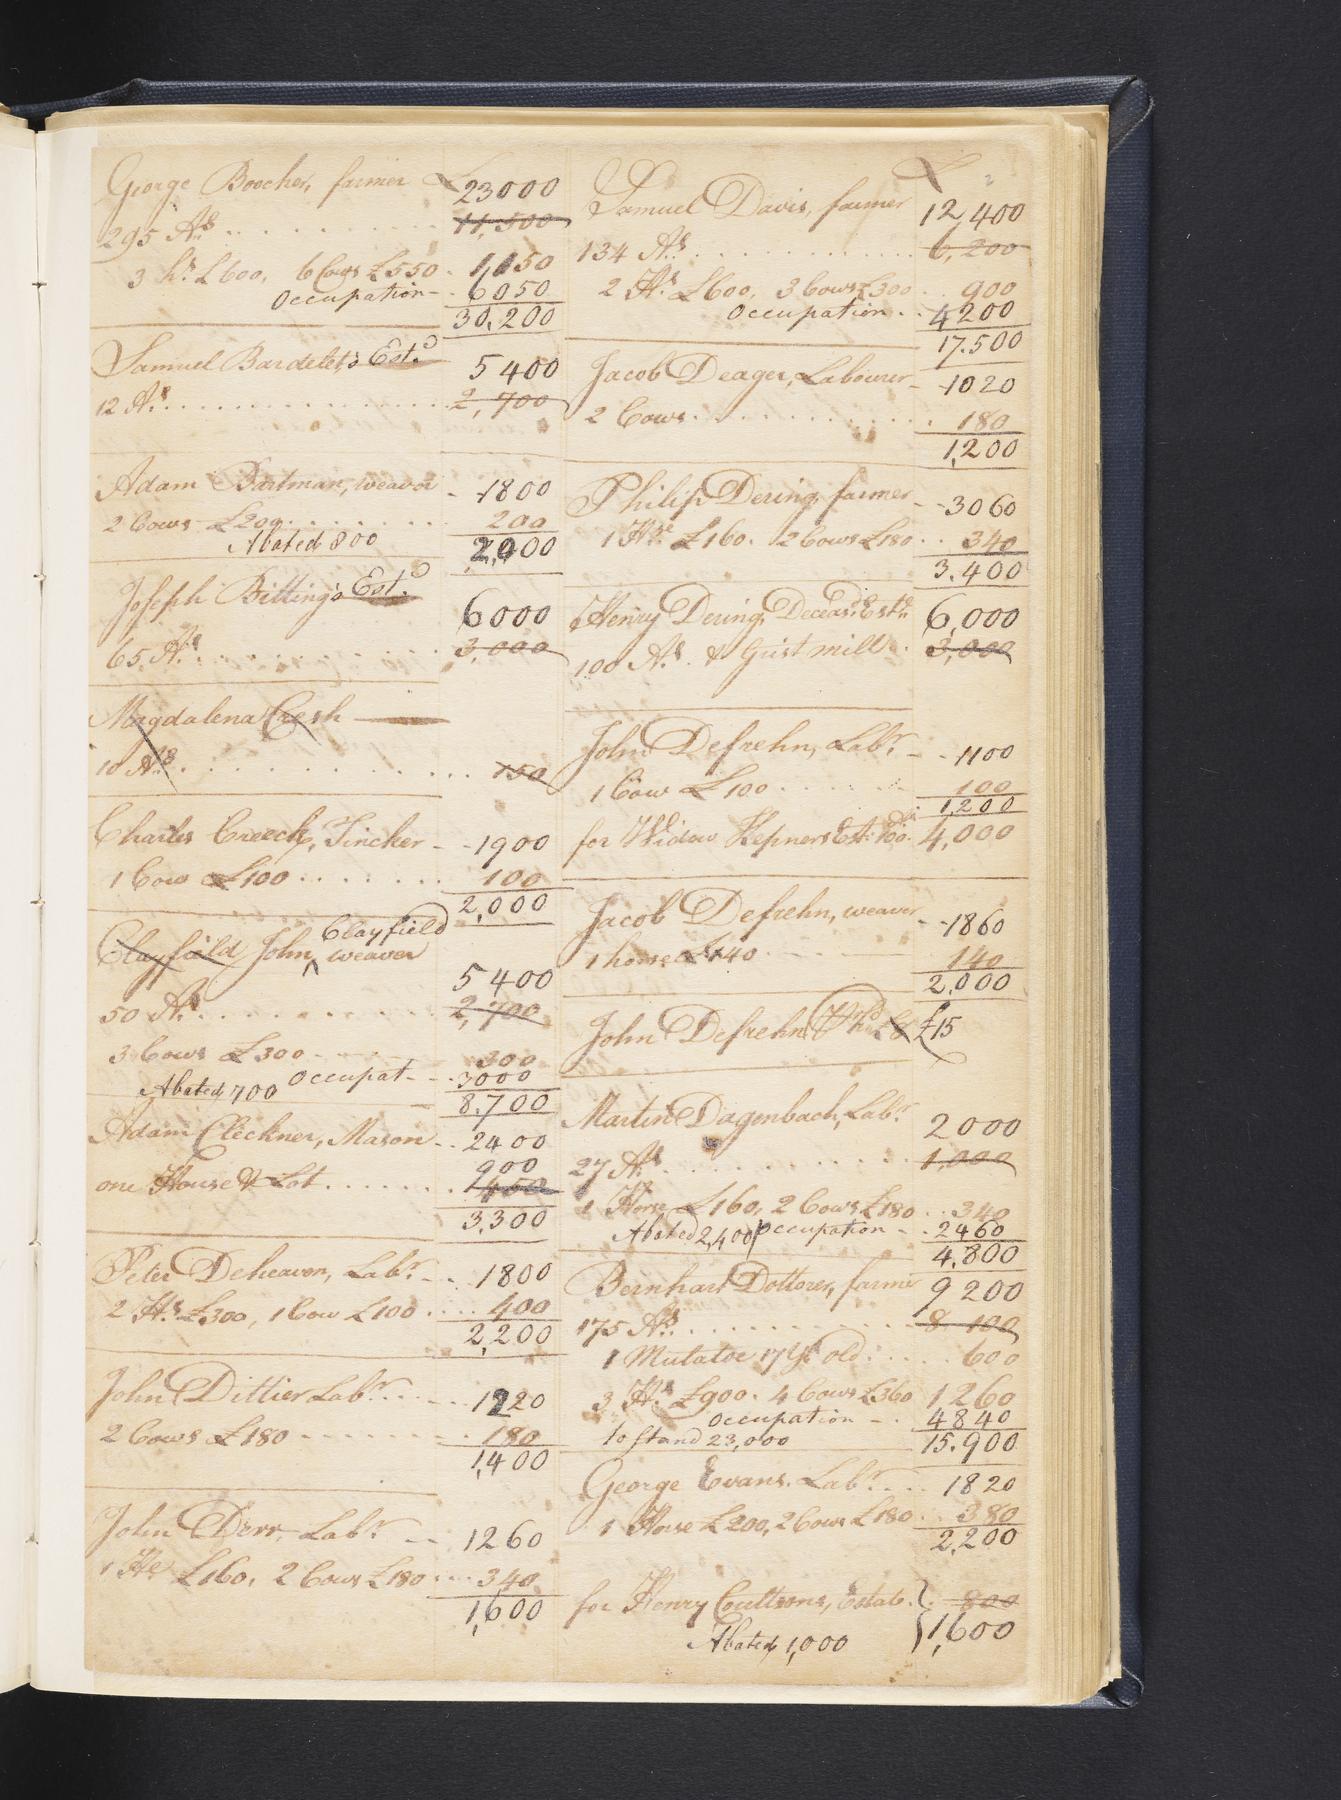 George Boocher, farmer £ 23000
295 As. . . . . . . . . . 11,500
3 hs. £600, 6 Cows £550 . 1,150
Occupation - . 6050
30,200
Samuel Bardelet's Estd
5400
12 As. . . . . . . . . . . 2,700
Adam Bartman, weaver - 1800
2 Cows £200 . . . . . . 200
Abated 800 2,000
Joseph Billing's Estd.
6000
65 As. . . . . . . . . . 3,000
Magdalena Cresh
10 As. . . . . . . . . . . 150
Charles Creech, Tincker - - 1900
1 Cow £100 . . . . . . 100
2,000
Clayfield
Clayfield John, ^ weaver
5400
50 As. . . . . . . . . 2,700
3 Cows £300 - - - - 300
Abated 700 Occupat - - - 3000
8.700
Adam Cleckner, Mason - . 2400
900
one House & Lot . . . . . . 450
3,300
Peter Deheaven, Labr. - . . 1800
2 Hs. £300, 1 Cow £100 . . . . 400
2,200
John Dittier Labr. . . . - - 1220
2 Cows £180 - - - - - - - 180
1,400
John Derr, Labr. - - 1260
1 He. £160, 2 Cows £180 . . . 340
1,600
£
Samuel Davis, farmer 12,400
134 As. . . . . . . . . . . 6,200
2 Hs. £600, 3 Cows £300 . . 900
Occupation . . 4200
17.500
Jacob Deager, Labourer - 1020
2 Cows . . . . . . . . . . . 180
1,200
Philip Dering, farmer - - 3060
1 Hse. £160. 2 Cows £180 . . 340
3.400
Henry Dering, Deceasd. Este. 6,000
100 As. & Grist mill . 3,000
John Defrehn, Labr. - - 1100
1 Cow £100 . . . . . . 100
1,200
for Widow Kepners Est: 100. 4,000
Jacob Defrehn, weaver - - 1860
1 horse £140 - - - 140
2,000
John Defrehn £15
Martin Dagenbach, Labr. 2000
27 As. . . . . . . . . . . 1,000
1 Horse £160, 2 Cows £180 . . 340
Abated 2,400 Occupation - . 2460
4,800
Bernhart Dotterer, farmer 9200
175 As. . . . . . . . . . . 8 100
1 Mulatoe 17 Ys. old . . . . . 600
3 Hs. £900. 4 Cows £360 1260
Occupation - . 4840
to stand 23,000 15.900
George Evans. Labr. . . . 1820
1 Horse £200, 2 Cows £180 . . 380
2,200
for Henry Coultsons, Estate. } 800
Abated 1,000 1,600